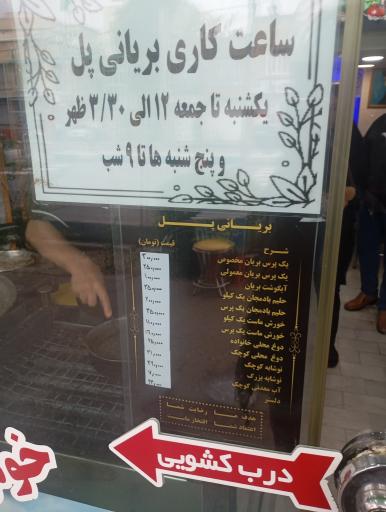 ساعت کاری بریانی پل
یکشنبه تا جمعه ۱۲ الی ۳/۳۰ ظهر
و پنج شنبه ها تا ۹ شب
بریانی پل
شرح
قیمت (تومان)
یک پرس بریان مخصوص
یک پرس بریان معمولی
آبگوشت بریان
حلیم بادمجان یک کیلو
حلیم بادمجان یک پرس
خورش ماست یک کیلو
خورش ماست یک پرس
دوغ محلی خانواده
دوغ محلی کوچک
نوشابه کوچک
نوشابه بزرگ
آب معدنی کوچک
دلستر
هدف ما رضایت شما
اعتماد شما افتخار ماست
درب کشویی